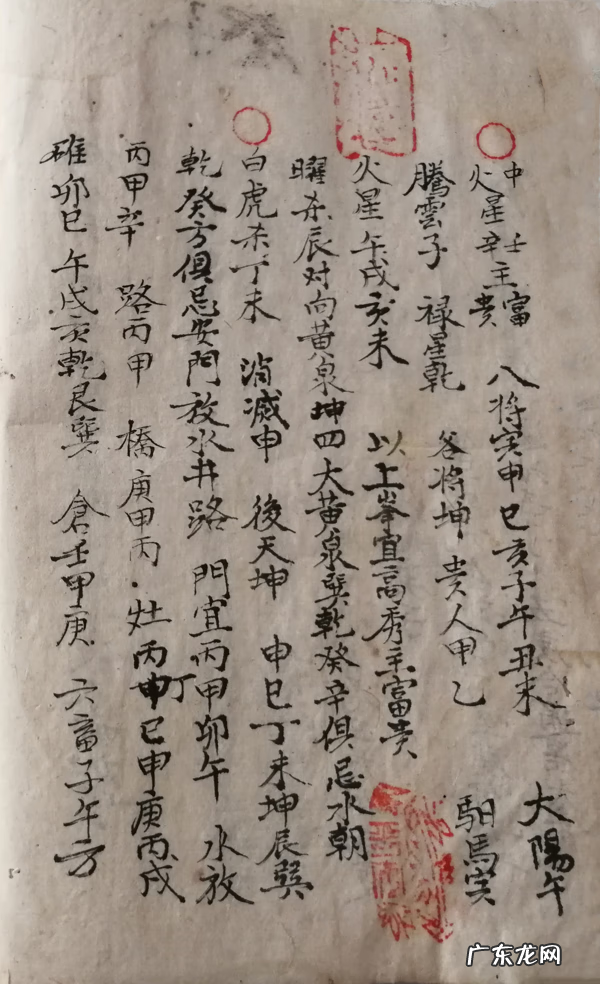 中火星壬辛主富貴 八将寅申巳亥子午丑未 大陽午
騰雲子 禄星乾 各将坤 貴人甲乙 馹馬寅
火星午戌亥未 以上峯宜高秀主富貴
曜杀辰对向黄泉坤四大黄泉巽乾癸辛俱忌水朝
白虎杀丁未 消滅申 後天坤 申巳丁未坤辰巽
乾癸方俱忌安門放水井路 門宜丙甲卯午 水放
丙甲辛 路丙甲 橋庚甲丙 灶丙丁巳申庚丙戌
碓卯巳午戌亥乾艮巽 倉壬甲庚 六畜子午方
广东龙网